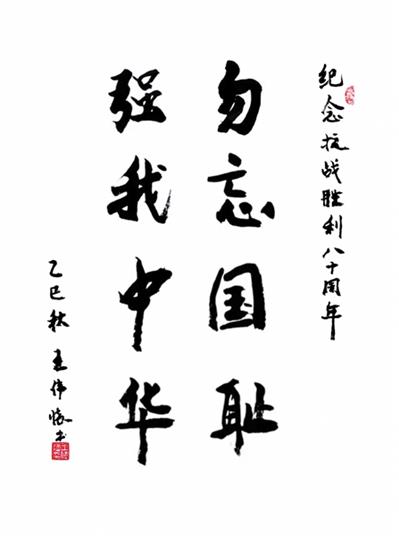 纪念抗战胜利八十周年
勿忘国耻
强我中华
乙巳秋